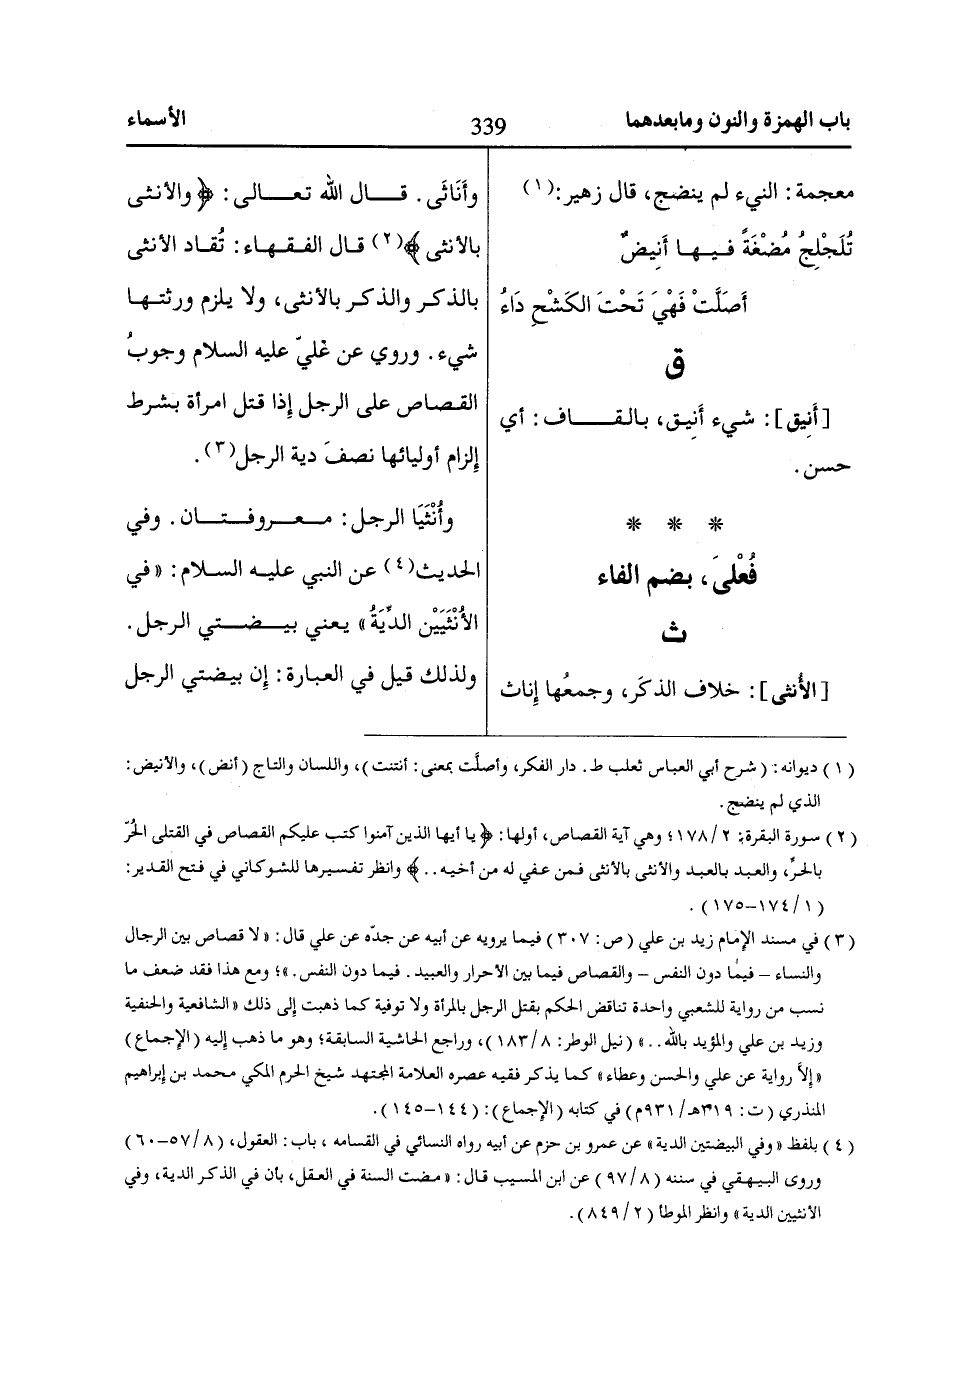 باب الهمزة والنون ومابعدهما
339
الأسماء
معجمة: النيء لم ينضج، قال زهير:(١)
تُلَجْلِجُ مُضْغَةً فيها أَنِيضٌ
أَصَلَّتْ فَهْيَ تَحْتَ الكَشْحِ دَاءُ
ق
[أَنِيق]: شيء أَنِيق، بالقاف: أي
حسن.
* * *
فُعْلَى، بضم الفاء
ث
[الأُنثى]: خلاف الذكَر، وجمعُها إِناث
وأَنَاثَى. قال الله تعالى: ﴿والأنثى
بالأنثى﴾(٢) قال الفقهاء: تُقاد الأنثى
بالذكر والذكر بالأنثى، ولا يلزم ورثتها
شيء. وروي عن عَليّ عليه السلام وجوبُ
القصاص على الرجل إِذا قتل امرأة بشرط
إِلزام أوليائها نصفَ دية الرجل(٣).
وأُنْثَيَا الرجل: معروفتان. وفي
الحديث(٤) عن النبي عليه السلام: «في
الأُنْثَيَيْن الدِّيَةُ» يعني بيضتي الرجل.
ولذلك قيل في العبارة: إِن بيضتي الرجل
(١) ديوانه: (شرح أبي العباس ثعلب ط. دار الفكر، وأصلَّت بمعنى: أنتنت)، واللسان والتاج (أنض)، والأنيض:
الذي لم ينضج.
(٢) سورة البقرة: ٢/١٧٨؛ وهي آية القصاص، أولها: ﴿يا أيها الذين آمنوا كتب عليكم القصاص في القتلى الحُرّ
بالحرِّ، والعبد بالعبد والأنثى بالأنثى فمن عفي له من أخيه..﴾ وانظر تفسيرها للشوكاني في فتح القدير:
(١/١٧٤–١٧٥).
(٣) في مسند الإمام زيد بن علي (ص: ٣٠٧) فيما يرويه عن أبيه عن جدّه عن علي قال: «لا قصاص بين الرجال
والنساء – فيما دون النفس – والقصاص فيما بين الأحرار والعبيد. فيما دون النفس.»؛ ومع هذا فقد ضعف ما
نسب من رواية للشعبي واحدة تناقض الحكم بقتل الرجل بالمرأة ولا توفية كما ذهبت إلى ذلك «الشافعية والحنفية
وزيد بن علي والمؤيد بالله..» (نيل الوطر: ٨/١٨٣)، وراجع الحاشية السابقة؛ وهو ما ذهب إليه (الإجماع)
«إلاَّ رواية عن علي والحسن وعطاء» كما يذكر فقيه عصره العلامة المجتهد شيخ الحرم المكي محمد بن إبراهيم
المنذري (ت: ٣١٩هـ/٩٣١م) في كتابه (الإجماع): (١٤٤–١٤٥).
(٤) بلفظ «وفي البيضتين الدية» عن عمرو بن حزم عن أبيه رواه النسائي في القسامه، باب: العقول، (٨/٥٧–٦٠)
وروى البيهقي في سننه (٨/٩٧) عن ابن المسيب قال: «مضت السنة في العقل، بأن في الذكر الدية، وفي
الأنثيين الدية» وانظر الموطأ (٢/٨٤٩).